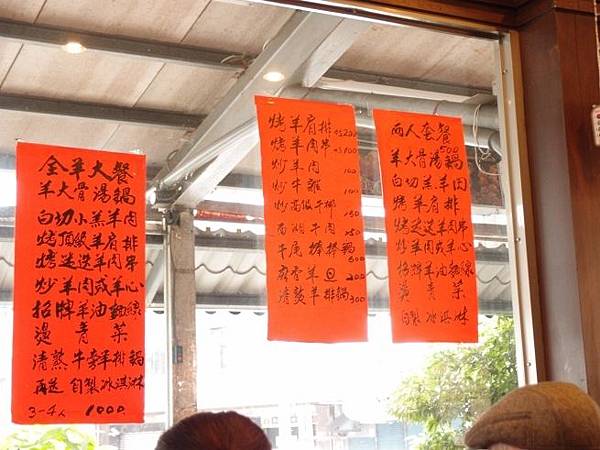 全羊大餐
羊大骨湯鍋
白切小羔羊肉
烤頂級羊肩排
烤迷迭羊肉串
炒羊肉或羊心
招牌羊油麵線
燙青菜
清燉牛蒡羊排鍋
再送自製冰淇淋
3-4人 1000.
烤羊肩排 200
烤羊肉串 100
炒羊肉 100
炒牛雜 100
炒高級牛柳 150
西湖牛肉 250
牛尾棒棒鍋 500
羊 200
清燉羊排鍋 300
兩人套餐
500
羊大骨湯鍋
白切羔羊肉
烤羊肩排
烤迷迭羊肉串
炒羊肉或羊心
招牌羊油麵線
燙青菜
自製冰淇淋